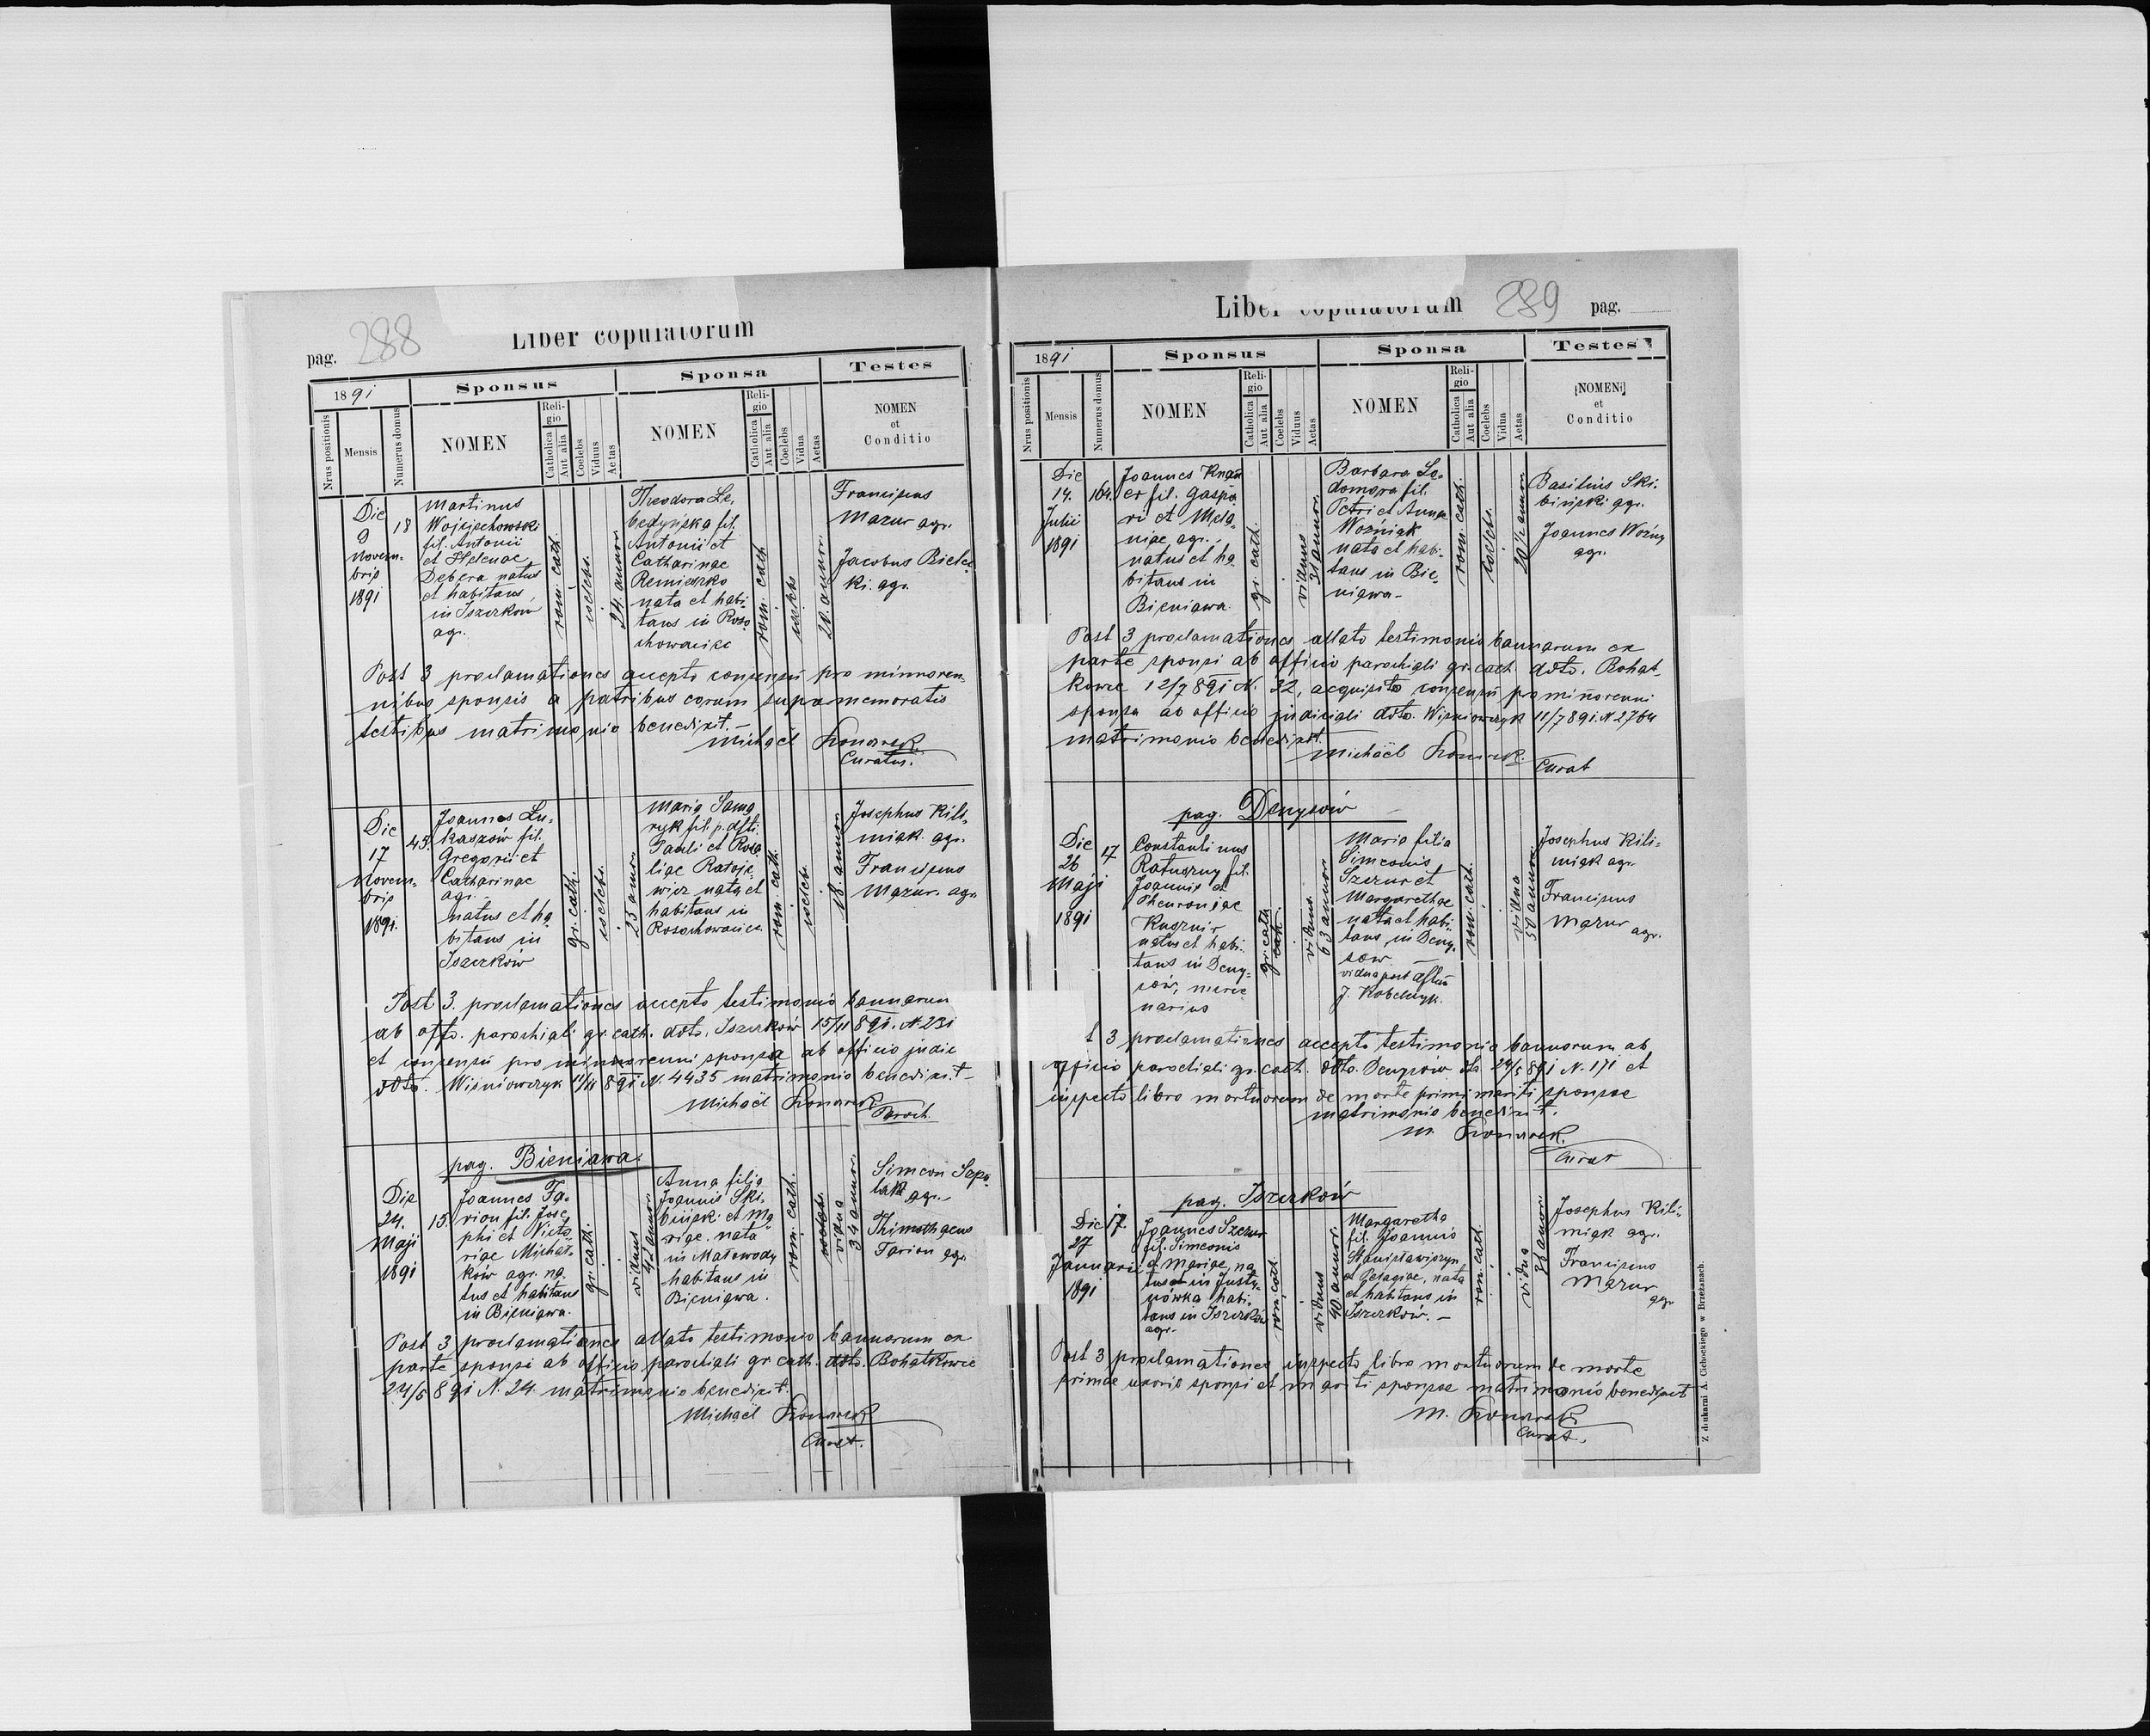 pag. 288
Liber copulatorum
1891
Sponsus
Sponsa
Testes
Nrus positionis
Mensis
Numerus domus
NOMEN
Religio
Catholica
Aut alia
Coelebs
Viduus
Aetas
NOMEN
Religio
Catholica
Aut alia
Coelebs
Vidua
Aetas
NOMEN
et
Conditio
Die
9
Novem-
bris
1891
18
Martinus
Wojciechowski
fil. Antonii
et Helenae
Debera natus
et habitans
in Iszczków
agr.
rom. cath.
coelebs.
24. annor.
Theodora Le-
bedyńska fil.
Antonii et
Catharinae
Remieszko
nata et habi-
tans in Roso
chowaciec
rom. cath
coelebs
20. annor.
Franciscus
Mazur agr.
Jacobus Bielec
ki. agr.
Post 3 proclamationes accepto consensu pro minnoren-
nibus sponsis a patribus eorum supra memoratis
testibus matrimonio benedixit.-
Michaël Konarek
Curatus.
Die
17
Novem-
bris
1891.
45.
Joannes Lu-
kaszów fil.
Gregorii et
Catharinae
agr.
natus et ha
bitans in
Iszczków
gr. cath.
coelebs.
25 annor.
Maria Sama
ryk fil. p. dfti.
Pauli et Rosa
liae Rataje-
wicz nata et
habitans in
Rosochowaciec.
rom. cath.
coelebs.
18 annor.
Josephus Kili-
miak agr.
Franciscus
Mazur. agr.
Post 3. proclamationes accepto testimonio bannorum
ab offo. parochiali gr. cath. ddto. Iszczków 15/11 891. N. 231
et consensu pro minnorenni sponsa ab officio judic
ddto. Wiśniowczyk 11/11 891 N. 4435 matrimonio benedixit-
Michaël Konarek
Paroch.
pag. Bieniawa.
Die
24.
Maji
1891
15.
Joannes Ta-
rion fil. Jose
phi et Victo
riae Michał-
ków agr. na
tus et habitans
in Bieniawa.
gr. cath.
viduus
42 annor.
Anna filia
Joannis Ski-
biński et Ma
riae. nata
in Małowody
habitans in
Bieniawa.
rom. cath.
coelebs.
vidua
34 annor.
Simeon Szpu
lak agr.-
Thimothaeus
Tarion agr.
Post 3 proclamationes allato testimonio bannorum ex
parte sponsi ab officio parochiali gr cath. ddto. Bohatkowce
24/5 891 N. 24. matrimonio benedixit.
Michaël Konarek
Curat.
Liber copulatorum
289 pag.
1891
Sponsus
Sponsa
Testes
Nrus positionis
Mensis
Numerus domus
NOMEN
Religio
Catholica
Aut alia
Coelebs
Viduus
Aetas
NOMEN
Religio
Catholica
Aut alia
Coelebs
Vidua
Aetas
NOMEN
et
Conditio
Die
14.
Julii
1891
164.
Joannes Knau
er fil. Gaspa
ri et Mela-
niae, agr.
natus et ha
bitans in
Bieniawa.
gr. cath.
viduus
31 annor.
Barbara Ło-
domora fil.
Petri et Annae
Woźniak
nata et habi-
tans in Bie-
niawa-
rom. cath.
coelebs.
20 1/2 annor
Basilius Ski-
biński agr.
Joannes Woźny
agr.
Post 3 proclamationes allato testimonio bannorum ex
parte sponsi ab officio parochiali gr. cath ddto. Bohat-
kowce 12/7 891 N. 32, acquisito consensu pro minorenni
sponsa ab officio judiciali ddto. Wiśniowczyk 11/7 891. N 2764
matrimonio benedixit.
Michaël Konarek.
Curat
pag. Denysów
Die
26
Maji
1891
17
Constantinus
Ratuszny fil.
Joannis et
Pheuroniae
Kusznir
natus et habi-
tans in Deny-
sów, merce
narius
gr. cath
cath.
viduus.
63 annor.
Maria filia
Simeonis
Szczur et
Margarethae
nata et habi-
tans in Deny-
sow
vidua post dftum
J. Kobelczyk.
rom. cath.
vidua
50 annor.
Josephus Kili-
miak agr.
Franciscus
Mazur agr.
t 3 proclamationes accepto testimonio bannorum ab
officio parochiali gr. cath. ddto. Denysów 24/5 891 N. 171 et
inspecto libro mortuorum de morte primi mariti sponsae
matrimonio benedixit.
M. Konarek.
Curat
pag. Iszczków
Die
27
Januarii
1891
17.
Joannes Szczur
fil. Simeonis
et Mariae, na
tus in Justy-
nówka habi-
tans in Iszczków
agr.
rom. cath
viduus
40 annor.
Margaretha
fil. Joannis
Stanisławiszyn
et Pelagiae, nata
et habitans in
Iszczków.-
rom. cath
vidua
Josephus Kili-
miak agr.
Franciscus
Mazur
agr
Post 3 proclamationes inspecto libro mortuorum de morte
primae uxoris sponsi et mariti sponsae matrimonio benedixit
M. Konarek
Curat.
Z drukarni A. Cichockiego w Brzeżanach.